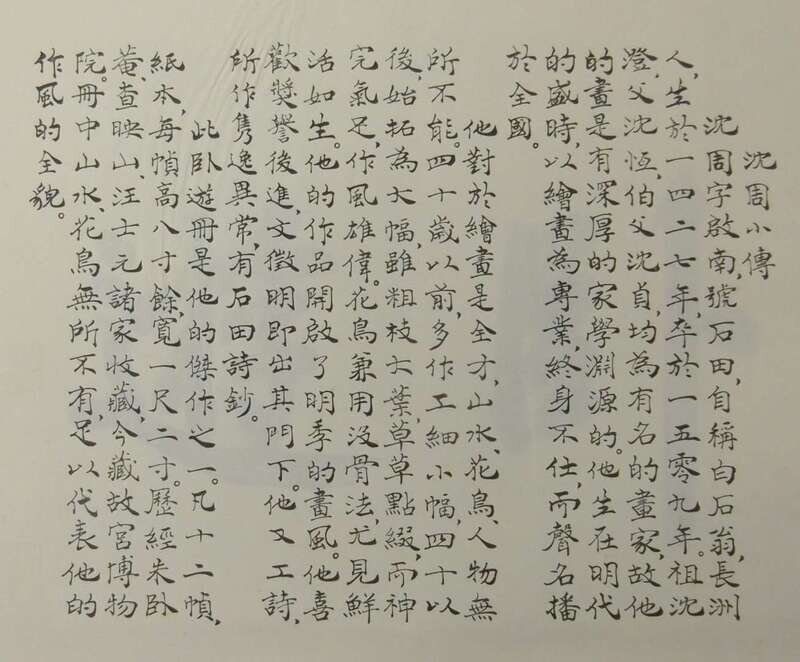 沈周小傳
沈周字啟南,號石田,自稱白石翁,長洲
人,生於一四二七年,卒於一五零九年。祖沈
澄,父沈恆,伯父沈貞,均為有名的畫家,故他
的畫是有深厚的家學淵源的。他生在明代
的盛時,以繪畫為專業,終身不仕,而聲名播
於全國。
他對於繪畫是全才,山水、花鳥、人物無
所不能。四十歲以前,多作工細小幅,四十以
後,始拓為大幅,雖粗枝大葉,草草點綴,而神
完氣足,作風雄偉。花鳥兼用沒骨法,尤見鮮
活如生。他的作品開啟了明季的畫風。他喜
歡獎譽後進,文徵明即出其門下。他又工詩,
所作雋逸異常,有石田詩鈔。
此卧遊冊是他的傑作之一。凡十二幀,
紙本,每幀高八寸餘,寬一尺二寸。歷經朱卧
菴、查映山、汪士元諸家收藏,今藏故宮博物
院。冊中山水、花鳥無所不有,足以代表他的
作風的全貌。